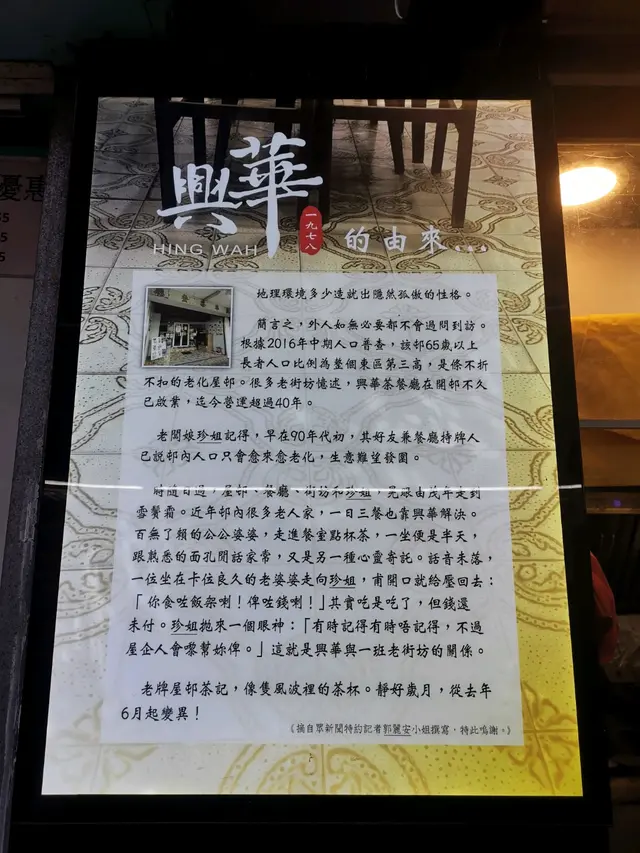 優惠
5
5
5
興華
一九七八
HING WAH
的由來...
地理環境多少造就出隱然孤傲的性格。
簡言之，外人如無必要都不會過問到訪。
根據2016年中期人口普查，該邨65歲以上
長者人口比例為整個東區第三高，是條不折
不扣的老化屋邨。很多老街坊憶述，興華茶餐廳在開邨不久
已啟業，迄今營運超過40年。
老闆娘珍姐記得，早在90年代初，其好友兼餐廳持牌人
已說邨內人口只會愈來愈老化，生意難望發圍。
時隨日過，屋邨、餐廳、街坊和珍姐，晃眼由茂年走到
雪鬢霜。近年邨內很多老人家，一日三餐也靠興華解決。
百無了賴的公公婆婆，走進餐室點杯茶，一坐便是半天，
跟熟悉的面孔閒話家常，又是另一種心靈寄託。話音未落，
一位坐在卡位良久的老婆婆走向珍姐，甫開口就給壓回去：
「你食咗飯㗎喇！俾咗錢喇！」其實吃是吃了，但錢還
未付。珍姐拋來一個眼神：「有時記得有時唔記得，不過
屋企人會嚟幫妳俾。」這就是興華與一班老街坊的關係。
老牌屋邨茶記，像隻風波裡的茶杯。靜好歲月，從去年
6月起變異！
《摘自眾新聞特約記者郭麗安小姐撰寫，特此鳴謝。》